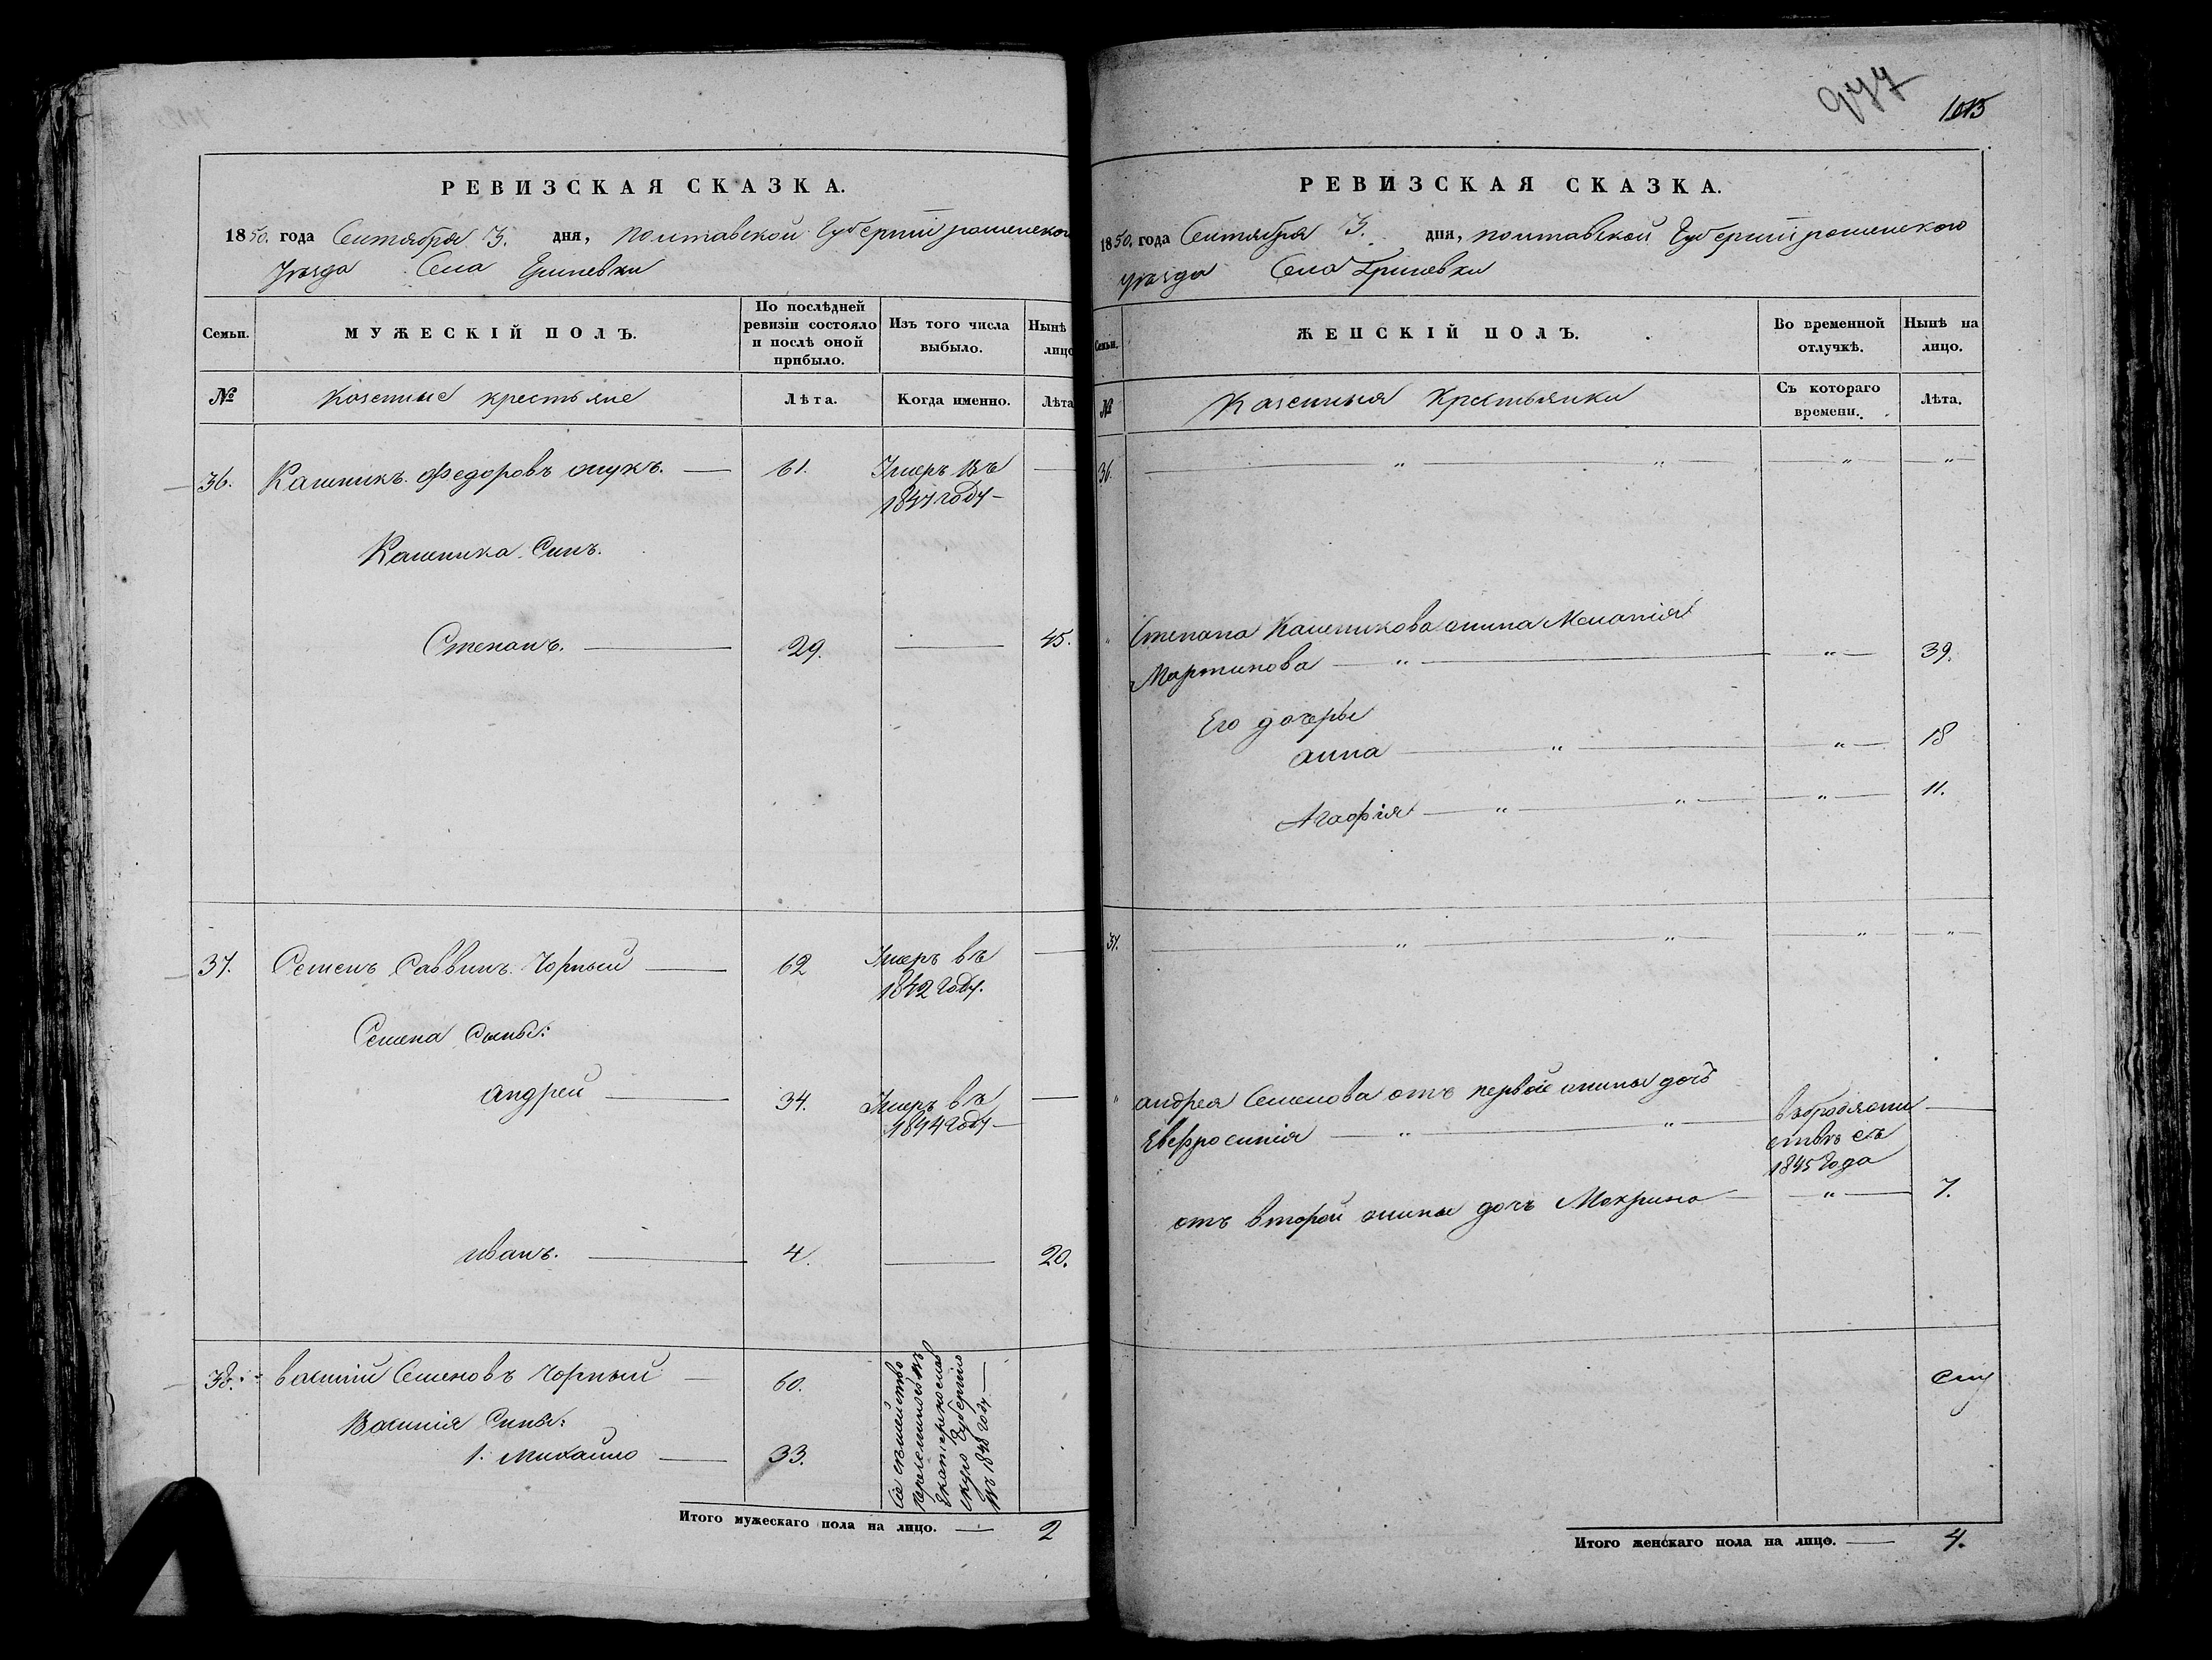 РЕВИЗСКАЯ СКАЗКА.
1850. года Сентября 3. дня, полтавской Губернии роменского
Уезда Села Гриневки
Семьи. МУЖЕСКІЙ ПОЛЪ. По послѣдней ревизіи состояло и послѣ оной прибыло. Изъ того числа выбыло. Нынѣ лицо
№ Казенные крестьяне Лѣта. Когда именно. Лѣта
36. Федоровъ 61. Умеръ въ
1847 году
Сынъ.
Степанъ. 29. 45.
37. Семенъ Саввинъ Чорный 62 Умеръ въ
1842 году.
Семена Сыны:
Андрей 34. Умеръ въ
1844 году
иванъ. 4. 20.
38. василий Семеновъ Чорный 60.
Василия Сыны:
1. Михайло 33.
Сіе семейство
переселилось въ
Екатеринослав
скую Губернию
въ 1848 году
Итого мужескаго пола на лицо. 2
977
1013
РЕВИЗСКАЯ СКАЗКА.
1850. года Сентября 3. дня, полтавской Губернии роменского
уезда Села Гриневки
Семьи. ЖЕНСКІЙ ПОЛЪ. Во временной отлучкѣ. Нынѣ на лицо.
№ Казенныя Крестьянки Съ котораго времени. Лѣта.
36. " " " "
" Степана жина Меланія
Мартинова " " 39.
Его дочеры
анна " " 18
Агафія " " " 11.
37. " " " "
" андрея Семенова отъ первое жины дочь
Евфросинія " "
въ бродяжни
ствѣ съ
1845 года
отъ второй жины дочъ Макрина " 7.
Итого женскаго пола на лицо. 4.